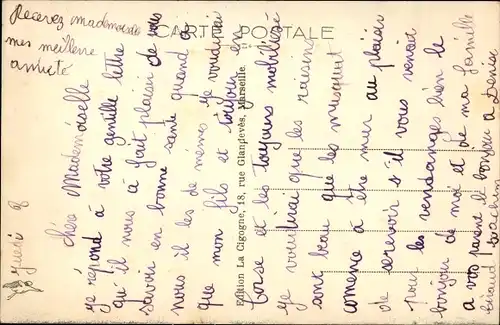 Recevez mademoiselle
mes meilleure
amitié
CARTE POSTALE
Jeudi 8
Chère Mademoiselle
je répond à votre gentille lettre
qu'il nous à fait plaisir de vous
savoir en bonne sante quand a
nous il les de mêmes je voudrai
que mon fils et toujour en
Corse et les toujours mobilisé
Edition La Cigogne, 18, rue Glandevès, Marseille.
je vous dirai que les raisins
sont beau que les musquat
comence à être mur au plaisir
de serevoir s'il vous venait
pour les vendanges bien le
bonjour de moi et de ma famille
a vos parent le bonjour a Denise